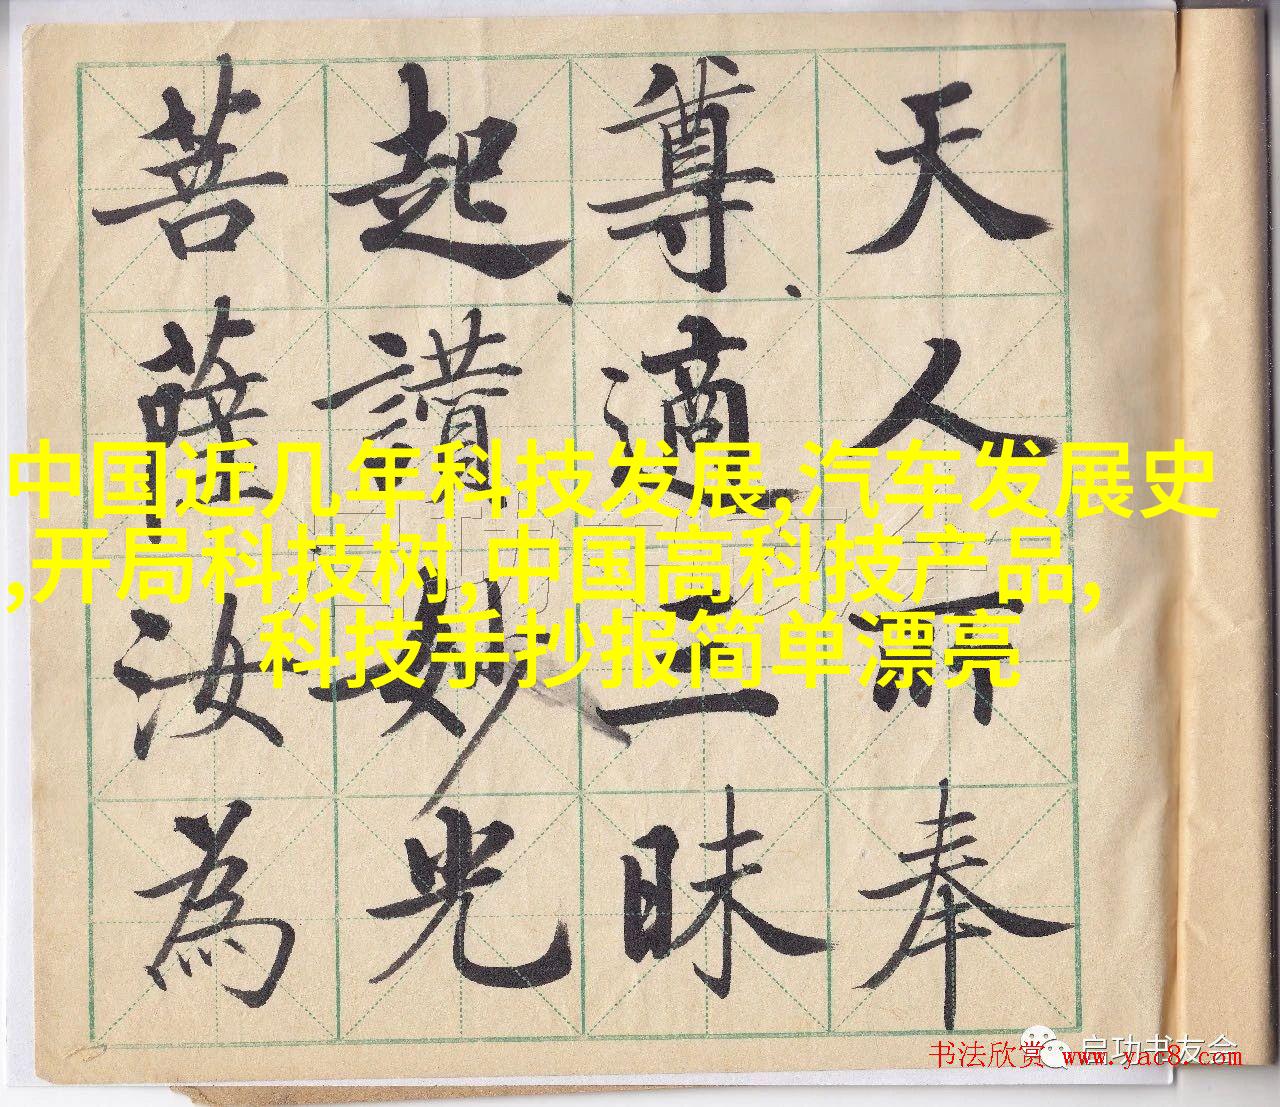 天人所奉
尊適三昧
起讃妙光
菩薩汝為
中国近几年科技发展,汽车发展史
,开局科技树,中国高科技产品,
科技手抄报简单漂亮
启功书友会
书法欣赏 www.yac8.com